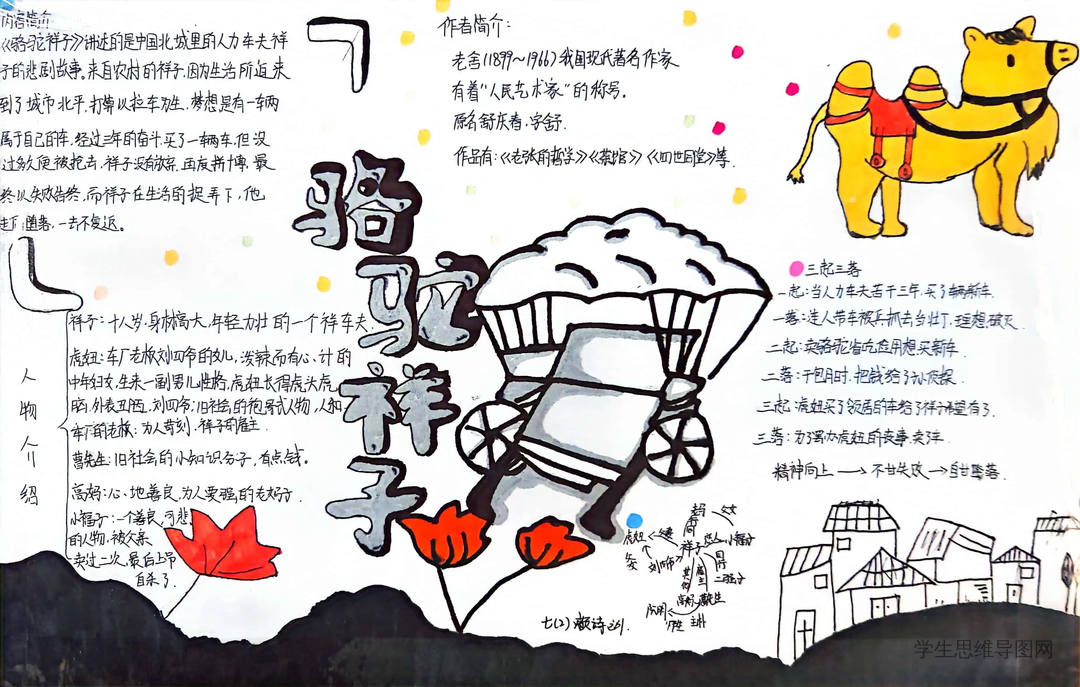 内容简介
《骆驼祥子》讲述的是中国北城里的人力车夫祥
子的悲剧故事。来自农村的祥子,因为生活所迫来
到了城市北平,打算以拉车为生,梦想是有一车两
属于自己的车,经过三年的奋斗,买了一辆车,但没
过多久便被抢去,祥子没有放弃,再度拼博,最
终以失败告终,而祥子在生活的捉弄下,他
走了堕落,一去不复返。
作者简介:
老舍(1899~1966)我国现代著名作家
有着"人民艺术家"的称号。
原名舒庆春,字舍.
作品有:《老张的哲学》《茶馆》《四世同堂》等.
骆驼祥子
人物介绍
祥子:十八岁,身材高大,年轻力壮的一个祥车夫.
虎妞:车厂老板刘四爷的女儿,泼辣而有心计的
中年妇女,生来一副男儿性格,虎妞长得虎头虎
脑,外表丑陋,刘四爷:旧社会的袍哥式人物,人和
车厂的老板:为人苛刻.祥子的雇主
曹先生:旧社会的小知识分子,有点钱。
高妈:心地善良,为人要强的老妈子.
小福子:一个善良,可悲
的人物,被父亲
卖过二次,最后上吊
自杀了.
三起三落
一起:当人力车夫苦干三年,买了辆新车.
一落:连人带车被兵抓去当壮丁,理想破灭.
二起:卖骆驼省吃俭用想买新车.
二落:干包月时,把钱给了孙侦探.
三起:虎妞买了领居的车给了祥子希望有了.
三落:为了办虎妞的丧事,卖了车.
精神向上→不甘失败→自甘堕落.
虎妞
父女
刘四爷
祥子
小福子
二强子
高妈
曹先生
七(2)
学生思维导图网